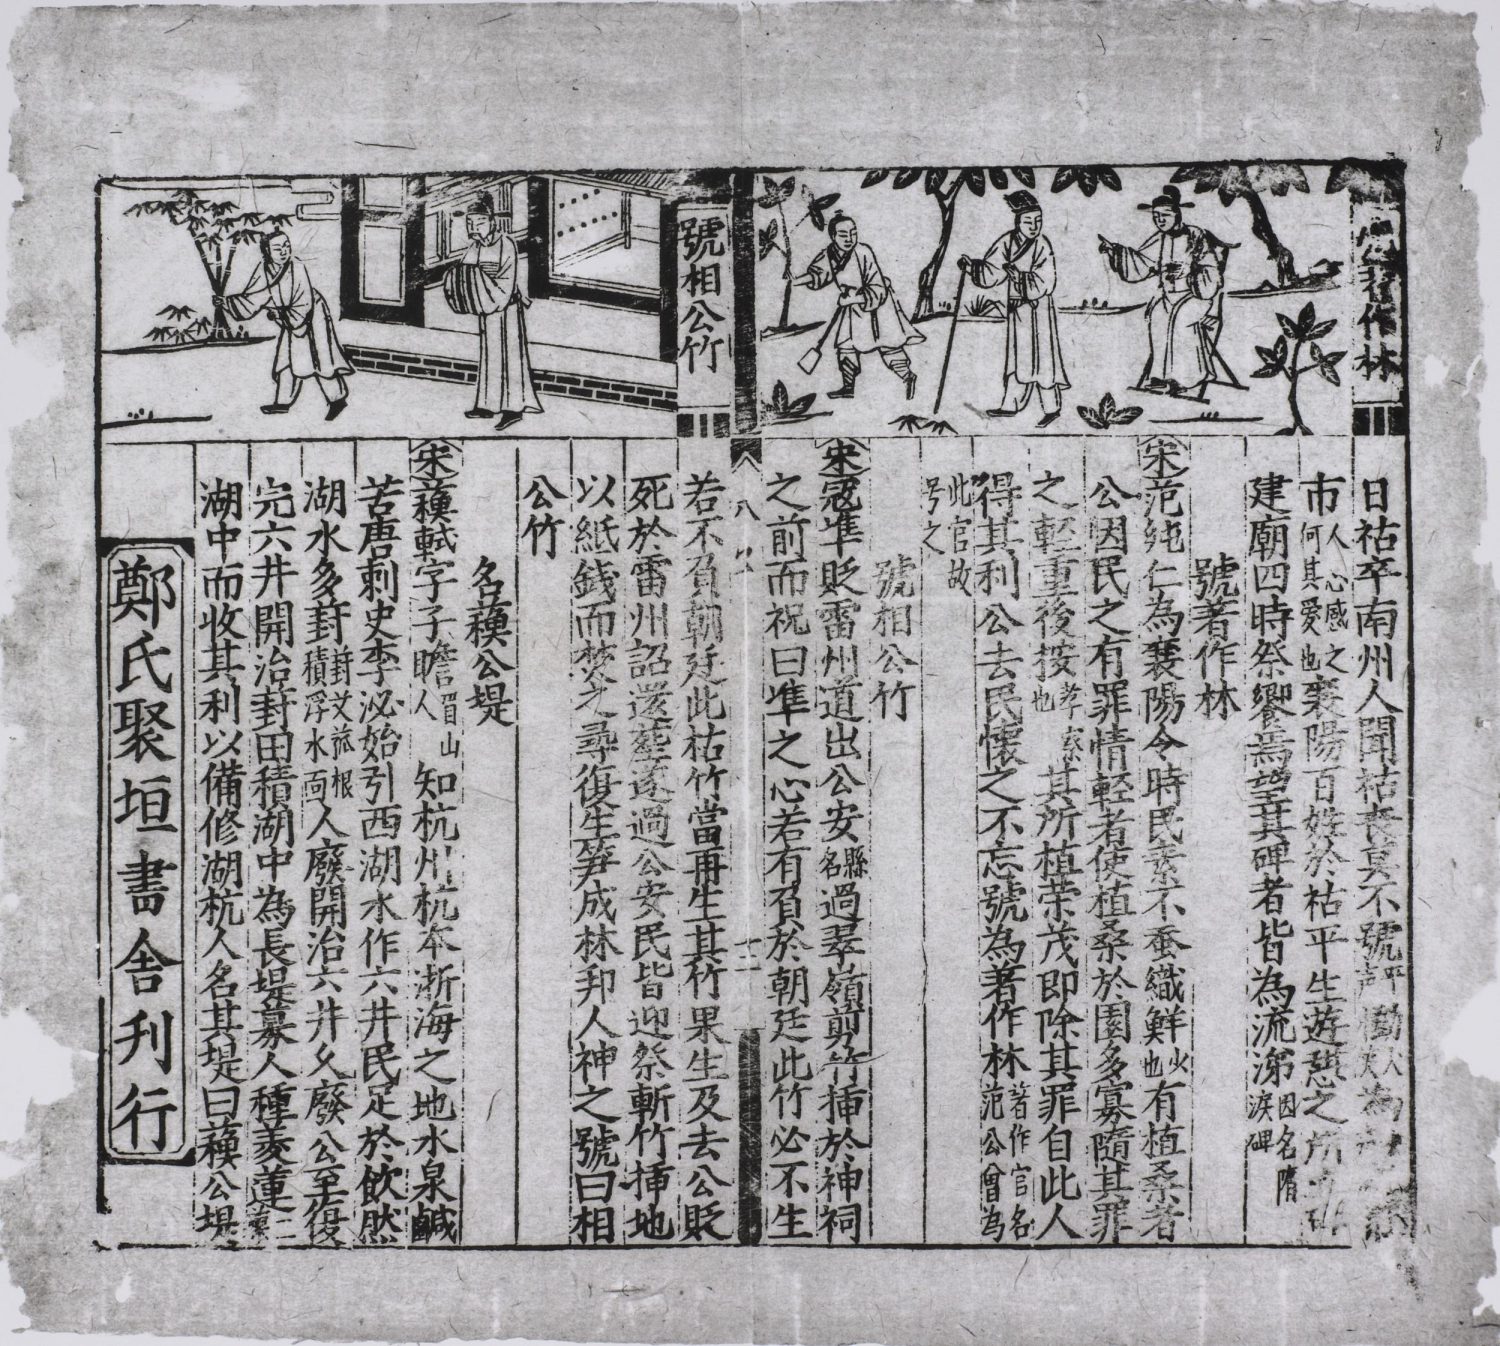 號著作林
日祜卒南州人聞祜喪莫不號慟
市人心感之何其愛也襄陽百姓於祜平生遊憩之所
建廟四時祭饗焉望其碑者皆為流涕因名隋淚碑
號著作林
宋范純仁為襄陽令時民素不蚕織鮮少也有植桑者
公因民之有罪情輕者使植桑於園多寡隨其罪
之輕重後按考察也其所植荣茂即除其罪自此人
得其利公去民懷之不忘號為著作林著作官名范公曾為
此官故号之
號相公竹
宋寇準貶雷州道出公安縣名過翠嶺剪竹插於神祠
之前而祝曰準之心若有負於朝廷此竹必不生
八
十二
號相公竹
若不負朝廷此枯竹當再生其竹果生及去公貶
死於雷州詔還葬逐過公安民皆迎祭斬竹插地
以紙錢而焚之尋復生笋成林邦人神之號曰相
公竹
名蘓公堤
宋蘓軾字子瞻眉山人知杭州杭本浙海之地水泉鹹
苦唐刺史李泌始引西湖水作六井民足於飲然
湖水多葑葑艾菰根積浮水面久廢開治六井久廢公至復
完六井開治葑田積湖中為長堤募人種菱蓮
湖中而收其利以備修湖杭人名其堤曰蘓公堤
鄭氏聚垣書舍刊行